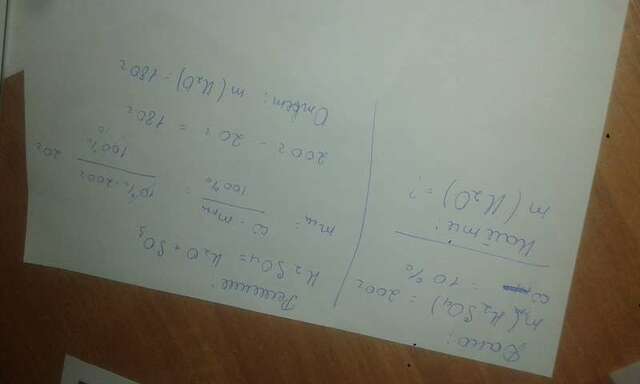 Дано:
m (H₂SO₄) = 200г
ω = 10%
Найти:
m (H₂O) = ?
Решение:
H₂SO₄ = H₂O + SO₃
ω · m
100%
=
10% · 200г
100%
20г
200г - 20г = 180г
Ответ: m (H₂O) = 180г